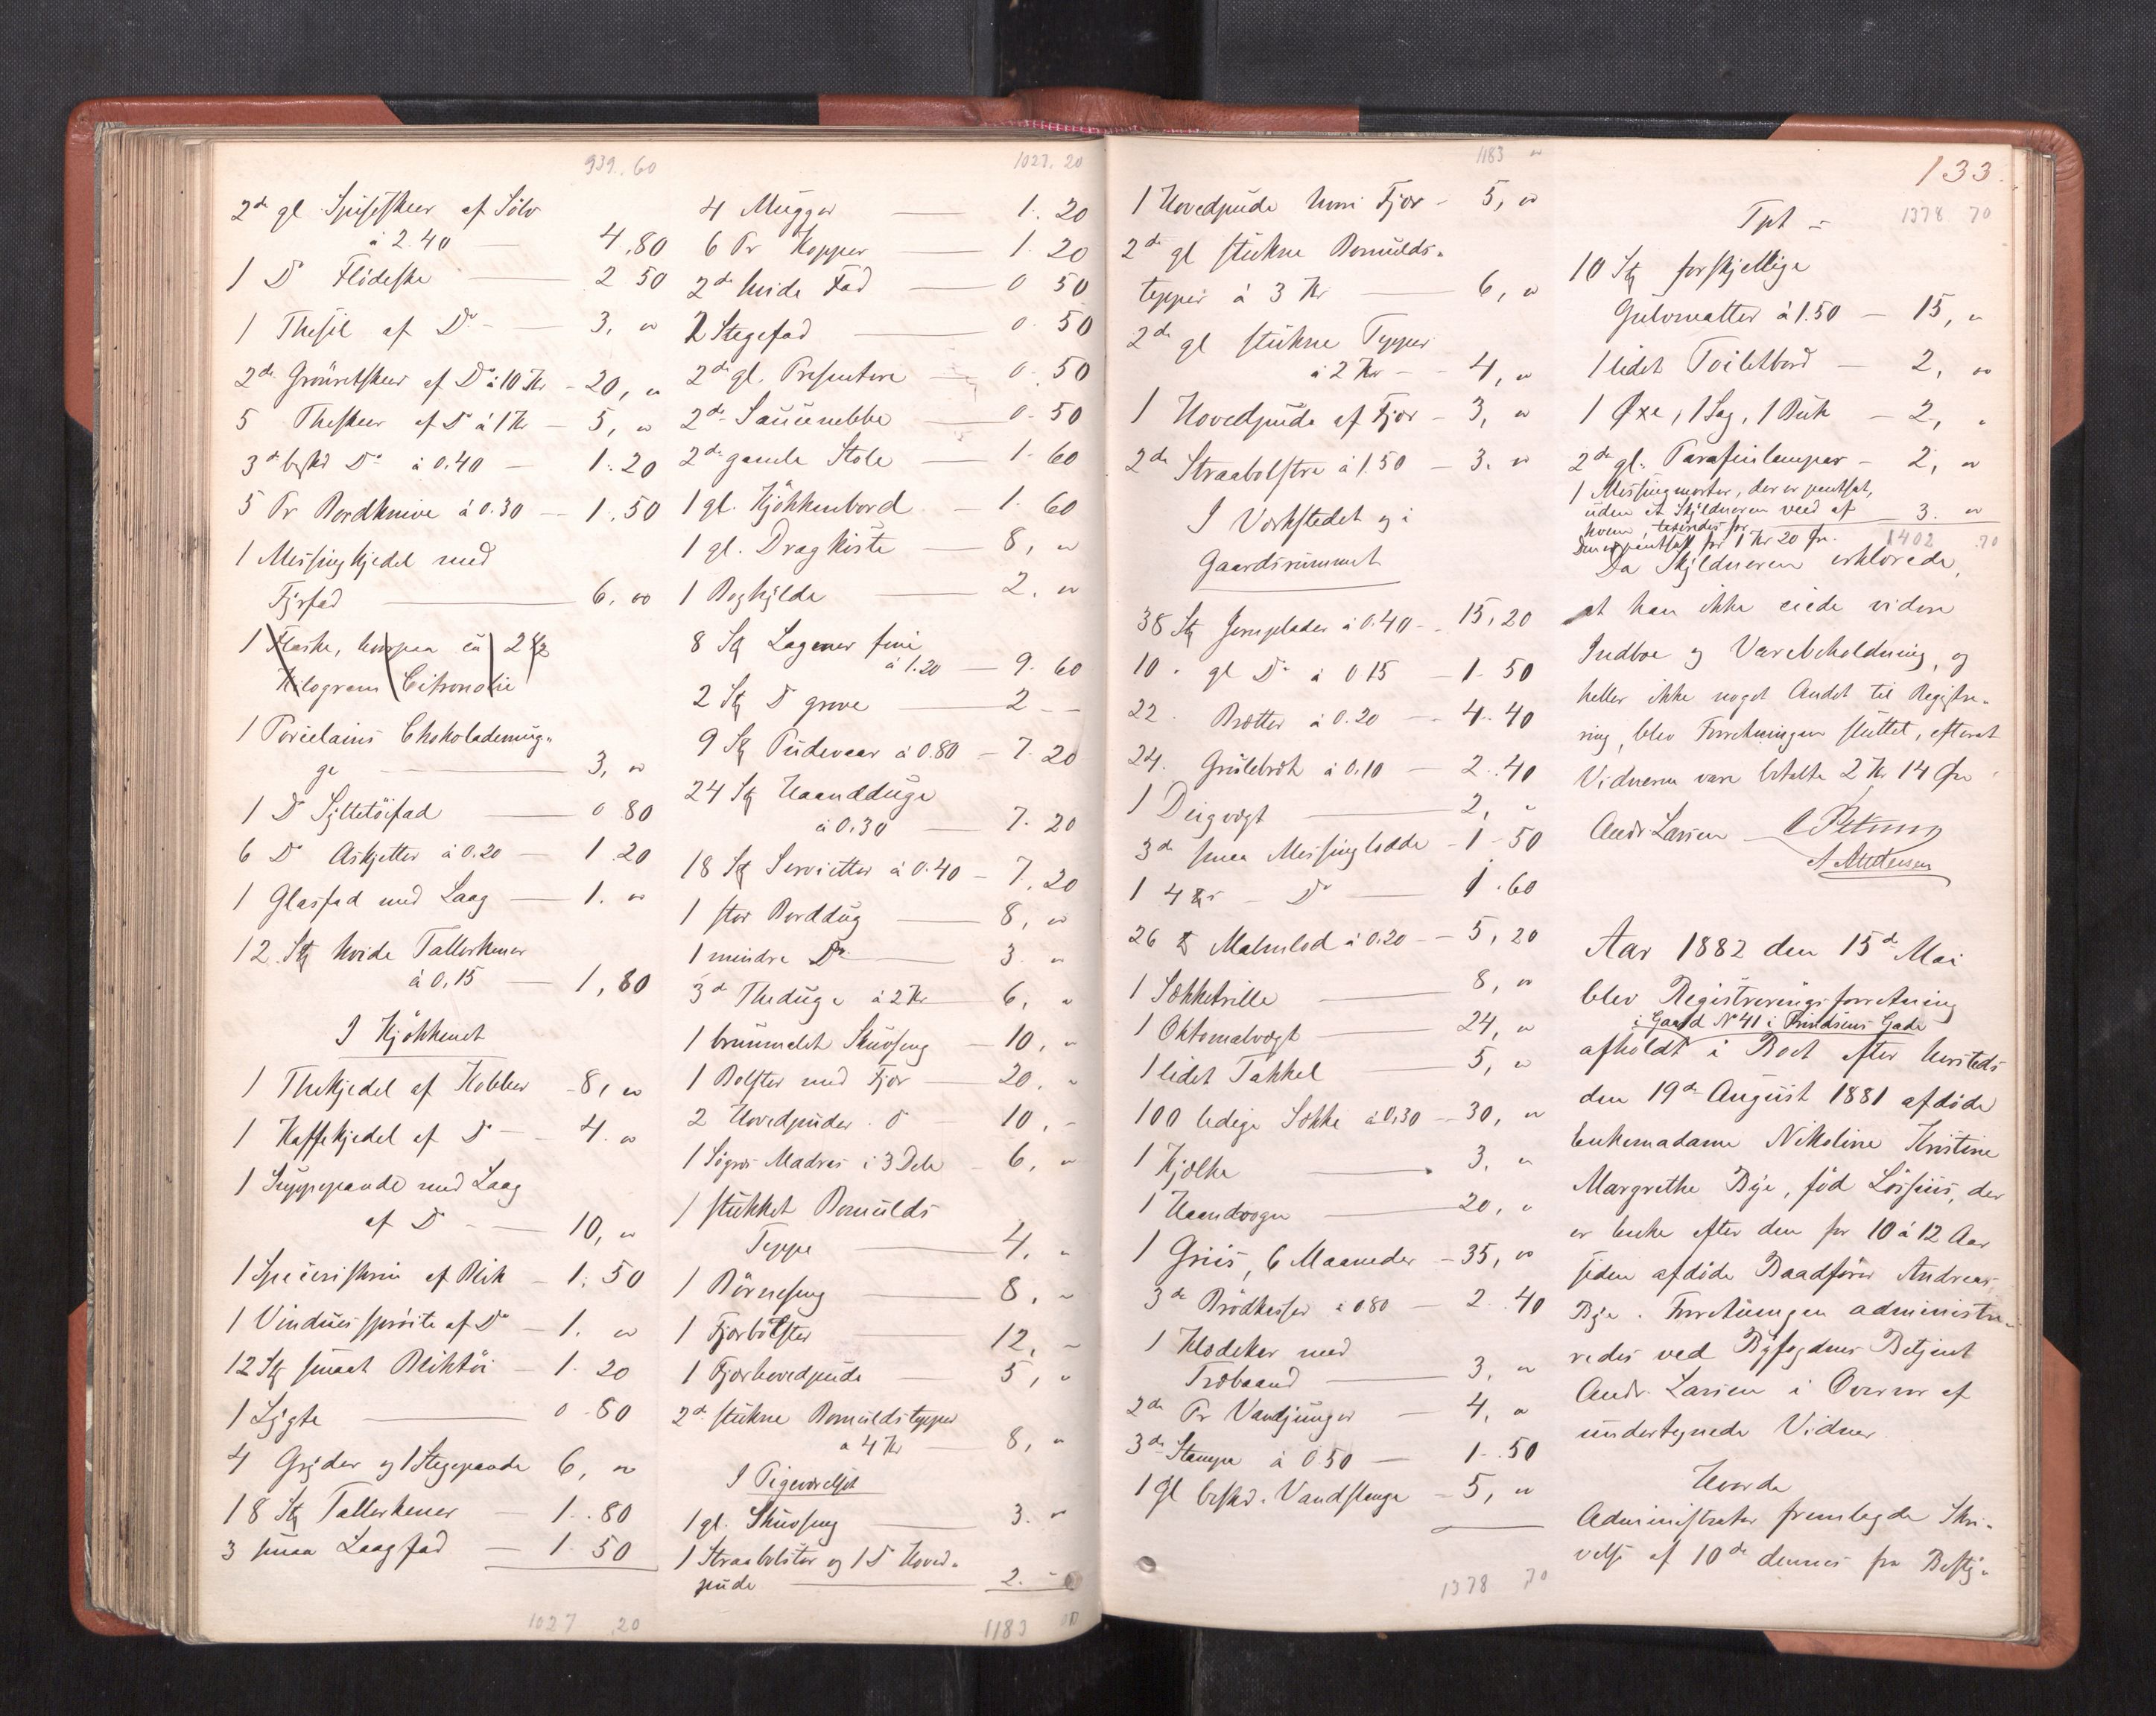 939. 60
2de gl Spiseskeer af Sölv
à 2.40 — 4.80
1 Do Flödeske — 2 50
1 Thesil af Do — 3, "
2de Grönretskeer af Do à 10 Kr - 20, "
5 Theskeer af Do à 1 Kr — 5, "
3de beskd Do à 0.40 — 1.20
5 Pr Bordknive à 0.30 — 1.50
1 Messingkjedel med
Fyrfad — 6. "
1 Flaske, hvorpaa ca 2 1/2
Kilogram Citronolie
1 Porcelains Chokolademug-
ge — 3, "
1 Do Syltetöifad — 0 80
6 Do Askjetter à 0.20 — 1.20
1 Glasfad med Laag — 1. "
12 Stk hvide Tallerkener
à 0,15 — 1,80
I Kjökkenet
1 Thekjedel af Kobber - 8, "
1 Kaffekjedel af Do - 4. "
1 Suppepande med Laag
af Do — 10, "
1 Specieriskrin af Blik - 1.50
1 Vinduesspröite af Do - 1. "
12 Stk smaat Bliktöi - 1.20
1 Lygte — 0.80
4 Gryder og 1 Stegepande 6, "
18 Stk Tallerkener — 1.80
3 smaa Laagfad — 1 50
1027 .20
1027. 20
4 Mugger — 1.20
6 Pr Kopper — 1.20
2de hvide Fad — 0 50
2 Stegefad — 0.50
2de gl. Presentere — 0.50
2de Saucenebbe — 0.50
2de gamle Stole — 1.60
1 gl. Kjökkenbord — 1.60
1 gl. Dragkiste — 8, "
1 Boghylde — 2. "
8 Stk Lagener fine
à 1.20 — 9.60
2 Stk Do grove — 2 --
9 Stk Pudevaar à 0.80 - 7.20
24 Stk Haandduge
à 0.30 — 7.20
18 Stk Servietter à 0.40 - 7.20
1 stor Borddug — 8, "
1 mindre Do — 3. "
3de Theduge à 2 Kr — 6, "
1 brunmalet Skuvseng — 10, "
1 Bolster med Fjær — 20. "
2 Hovedpuder Do — 10, -
1 Sögræs Madras i 3 Dele - 6, "
1 stukket Bomulds
Teppe — 4. "
1 Börneseng — 8, "
1 Fjærbolster — 12, "
1 Fjærhovedpude — 5, "
2de stukne Bomuldstepper
à 4 Kr — 8, "
I Pigeværelset
1 gl. Skuvseng — 3. "
1 Straabolster og 1 Do Hoved-
pude — 2. "
1183
1183 "
1 Hovedpude hvori Fjær - 5, "
2de gl stukne Bomulds-
tepper à 3 Kr — 6, "
2de gl stukne Tepper
à 2 Kr — 4, "
1 Hovedpude af Fjær - 3, "
2de Straabolstre à 1.50 - 3. "
I Værkstedet og i
Gaardsrummet
38 Stk Jernplader à 0.40 - 15,20
10 " gl Do à 0 15 — 1.50
22 " Brætter à 0.20 — 4.40
24. Grislebræt à 0.10 — 2.40
1 Deigvægt — 2, "
3de smaa Messinglodde - 1-50
1 4 ℔s - Do — 1.60
26 ℔ Malmlod à 0.20 - 5,20
1 Sækketrille — 8, "
1 Oktomalvægt — 24, "
1 lidet Takkel — 5, "
100 ledige Sække à 0,30 - 30, "
1 Kjælke — 3. "
1 Haandvogn — 20, "
1 Griis, 6 Maaneder - 35, "
3de Brödkasser à 0.80 - 2.40
1 Klædekar med
Træbaand — 3, "
2de Pr Vandjunger — 4, "
3de Stamper à 0.50 — 1.50
1 gl beskd. Vandslange - 5, "
1378 70
133.
Tpt - 1378 70
10 Stk forskjellige
Gulvmatter à 1.50 — 15, "
1 lidet Toiletbord — 2, "
1 Öxe, 1 Sag, 1 Buk — 2, "
2de gl. Parafinlamper - 2, "
1 Messingmorter, der er pantsat,
uden at Skyldneren veed af
hvem, — 3. "
Den er pantsatt for 1 Kr 20 Öre. 1402 .70
Da Skyldneren erklærede,
at han ikke eiede videre
Indboe og Varebeholdning, og
heller ikke noget Andet til Registre-
ring, blev Forretningen sluttet, efterat
Vidnerne vare betalte 2 Kr 14 Öre
Andr Larsen
A Andersen
Aar 1882 den 15de Mai
blev Registreringsforretning
i Gaard No 41 i Prindsens Gade
afholdt i Boet efter hersteds
den 19de August 1881 afdöde
Enkemadame Nikoline Kristine
Margrethe Bye, född Lössius, der
er Enke efter den for 10 à 12 Aar
siden afdöde Baadförer Andreas
Bye. Forretningen administre-
redes ved Byfogdens Betjent
Andr. Larsen i Overvær af
undertegnede Vidner.
Hvorda
Administrator fremlagde Skri-
velse af 10de dennes fra Besty-